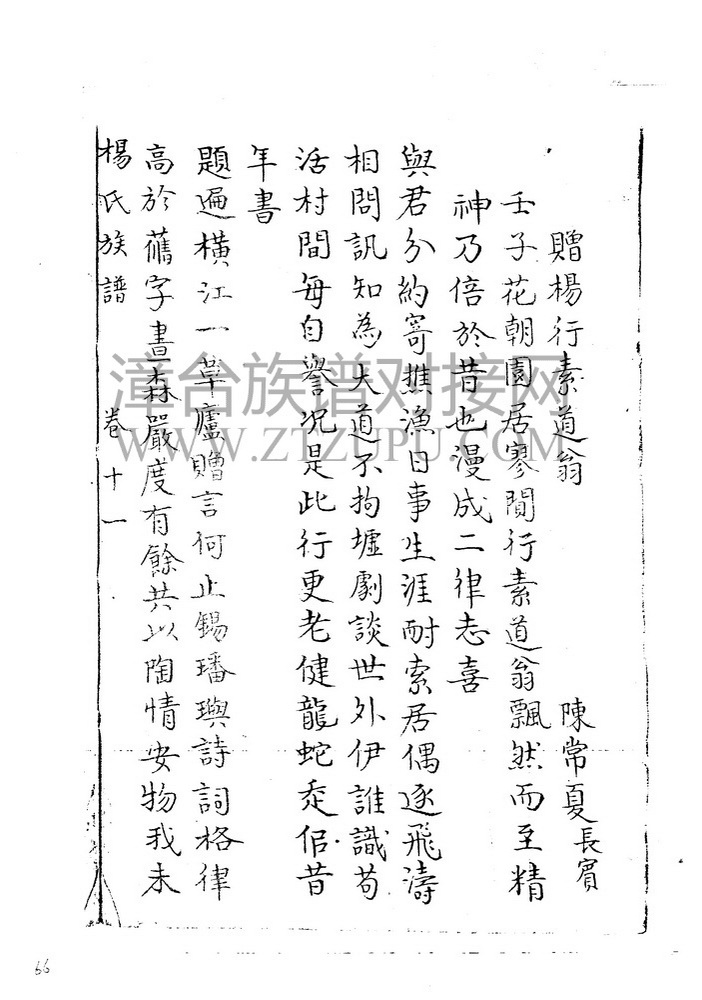 贈楊行素道翁 陳常夏長賓
壬子花朝園居寥閴行素道翁飄然而至精
神乃倍於昔也漫成二律志喜
與君分約寄樵漁日事生涯耐索居偶逐飛濤
相問訊知為大道不拘墟劇談世外伊誰識苟
活村間每自譽况是此行更老健龍蛇走倍昔
年書
題遍橫江一草廬贈言何止錫璠璵詩詞格律
高於舊字畫森嚴度有餘共以陶情安物我未
楊氏族譜 卷十一
漳台族谱对接网
WWW.ZTZUPU.COM
66